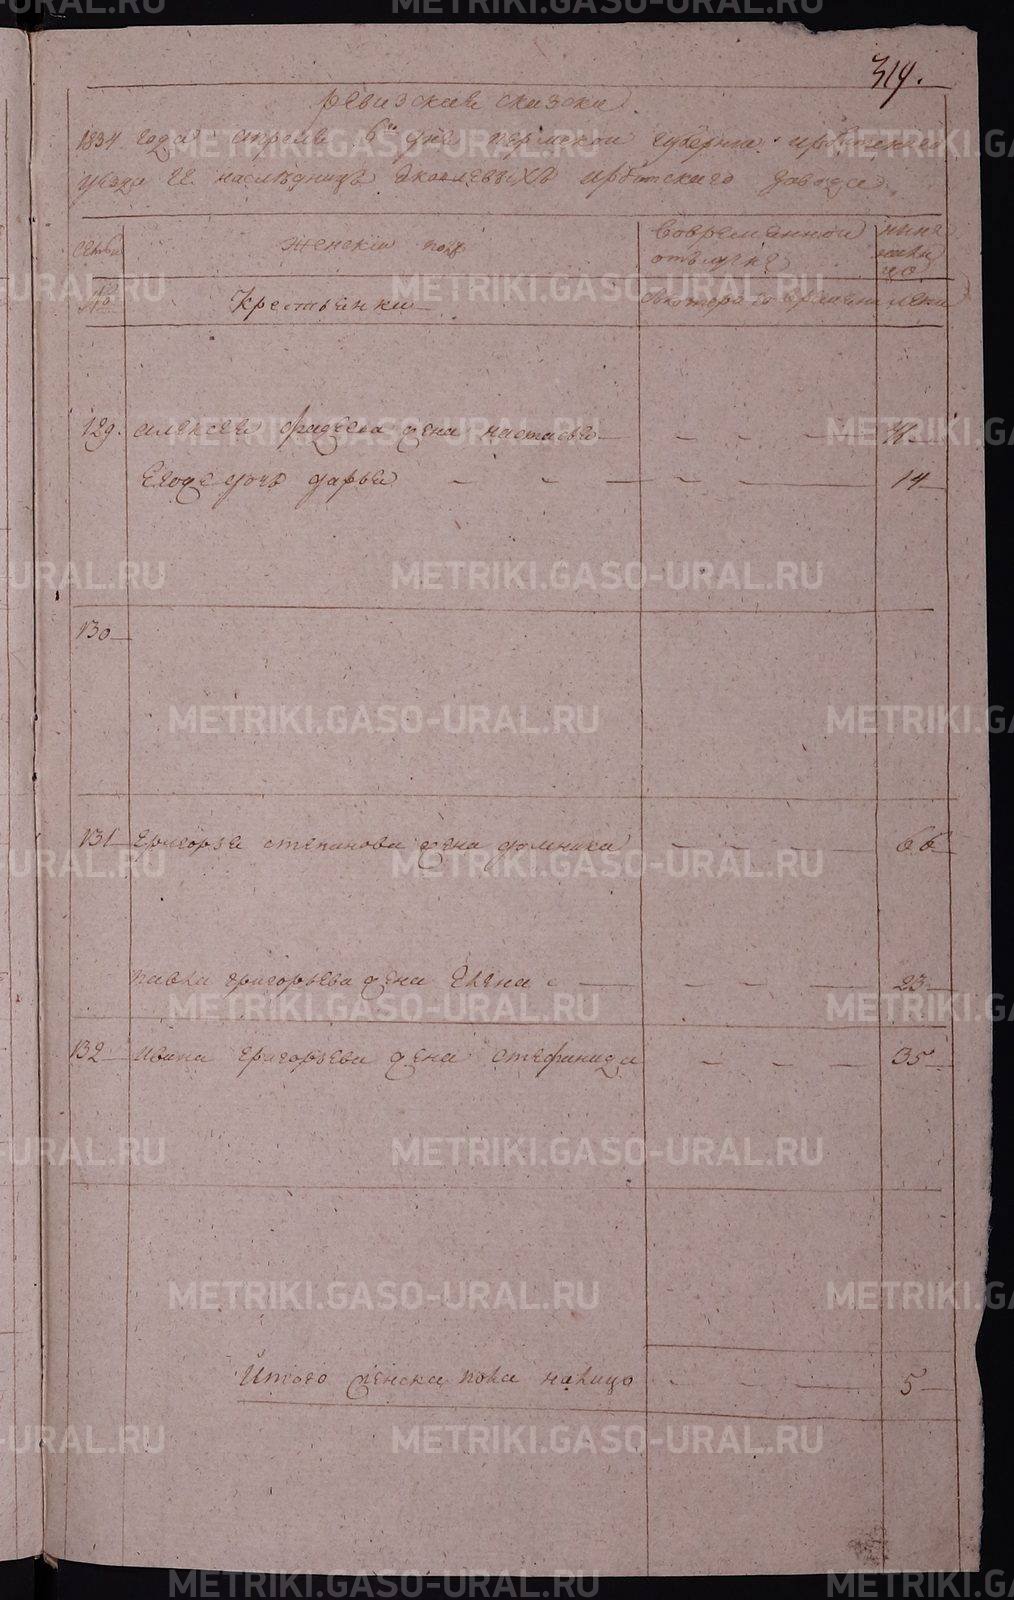 319.
ревизская сказка
1834 года апреля 6го дня пермской губернии ирбитского
уезда гг. наследниц Яковлевых ирбитского завода
семьи
женский пол
во временной
отлучке
ныне
на лицо
№
Крестьянки
с которого времени
лета
129. алексея фадеева жена настасья
Его же дочь дарья 14
130
131 григорья степанова жена домника 66
павла григорьева жена Елена 23
132 ивана григорьева жена стефанида 35
Итого женска пола налицо 5
METRIKI.GASO-URAL.RU